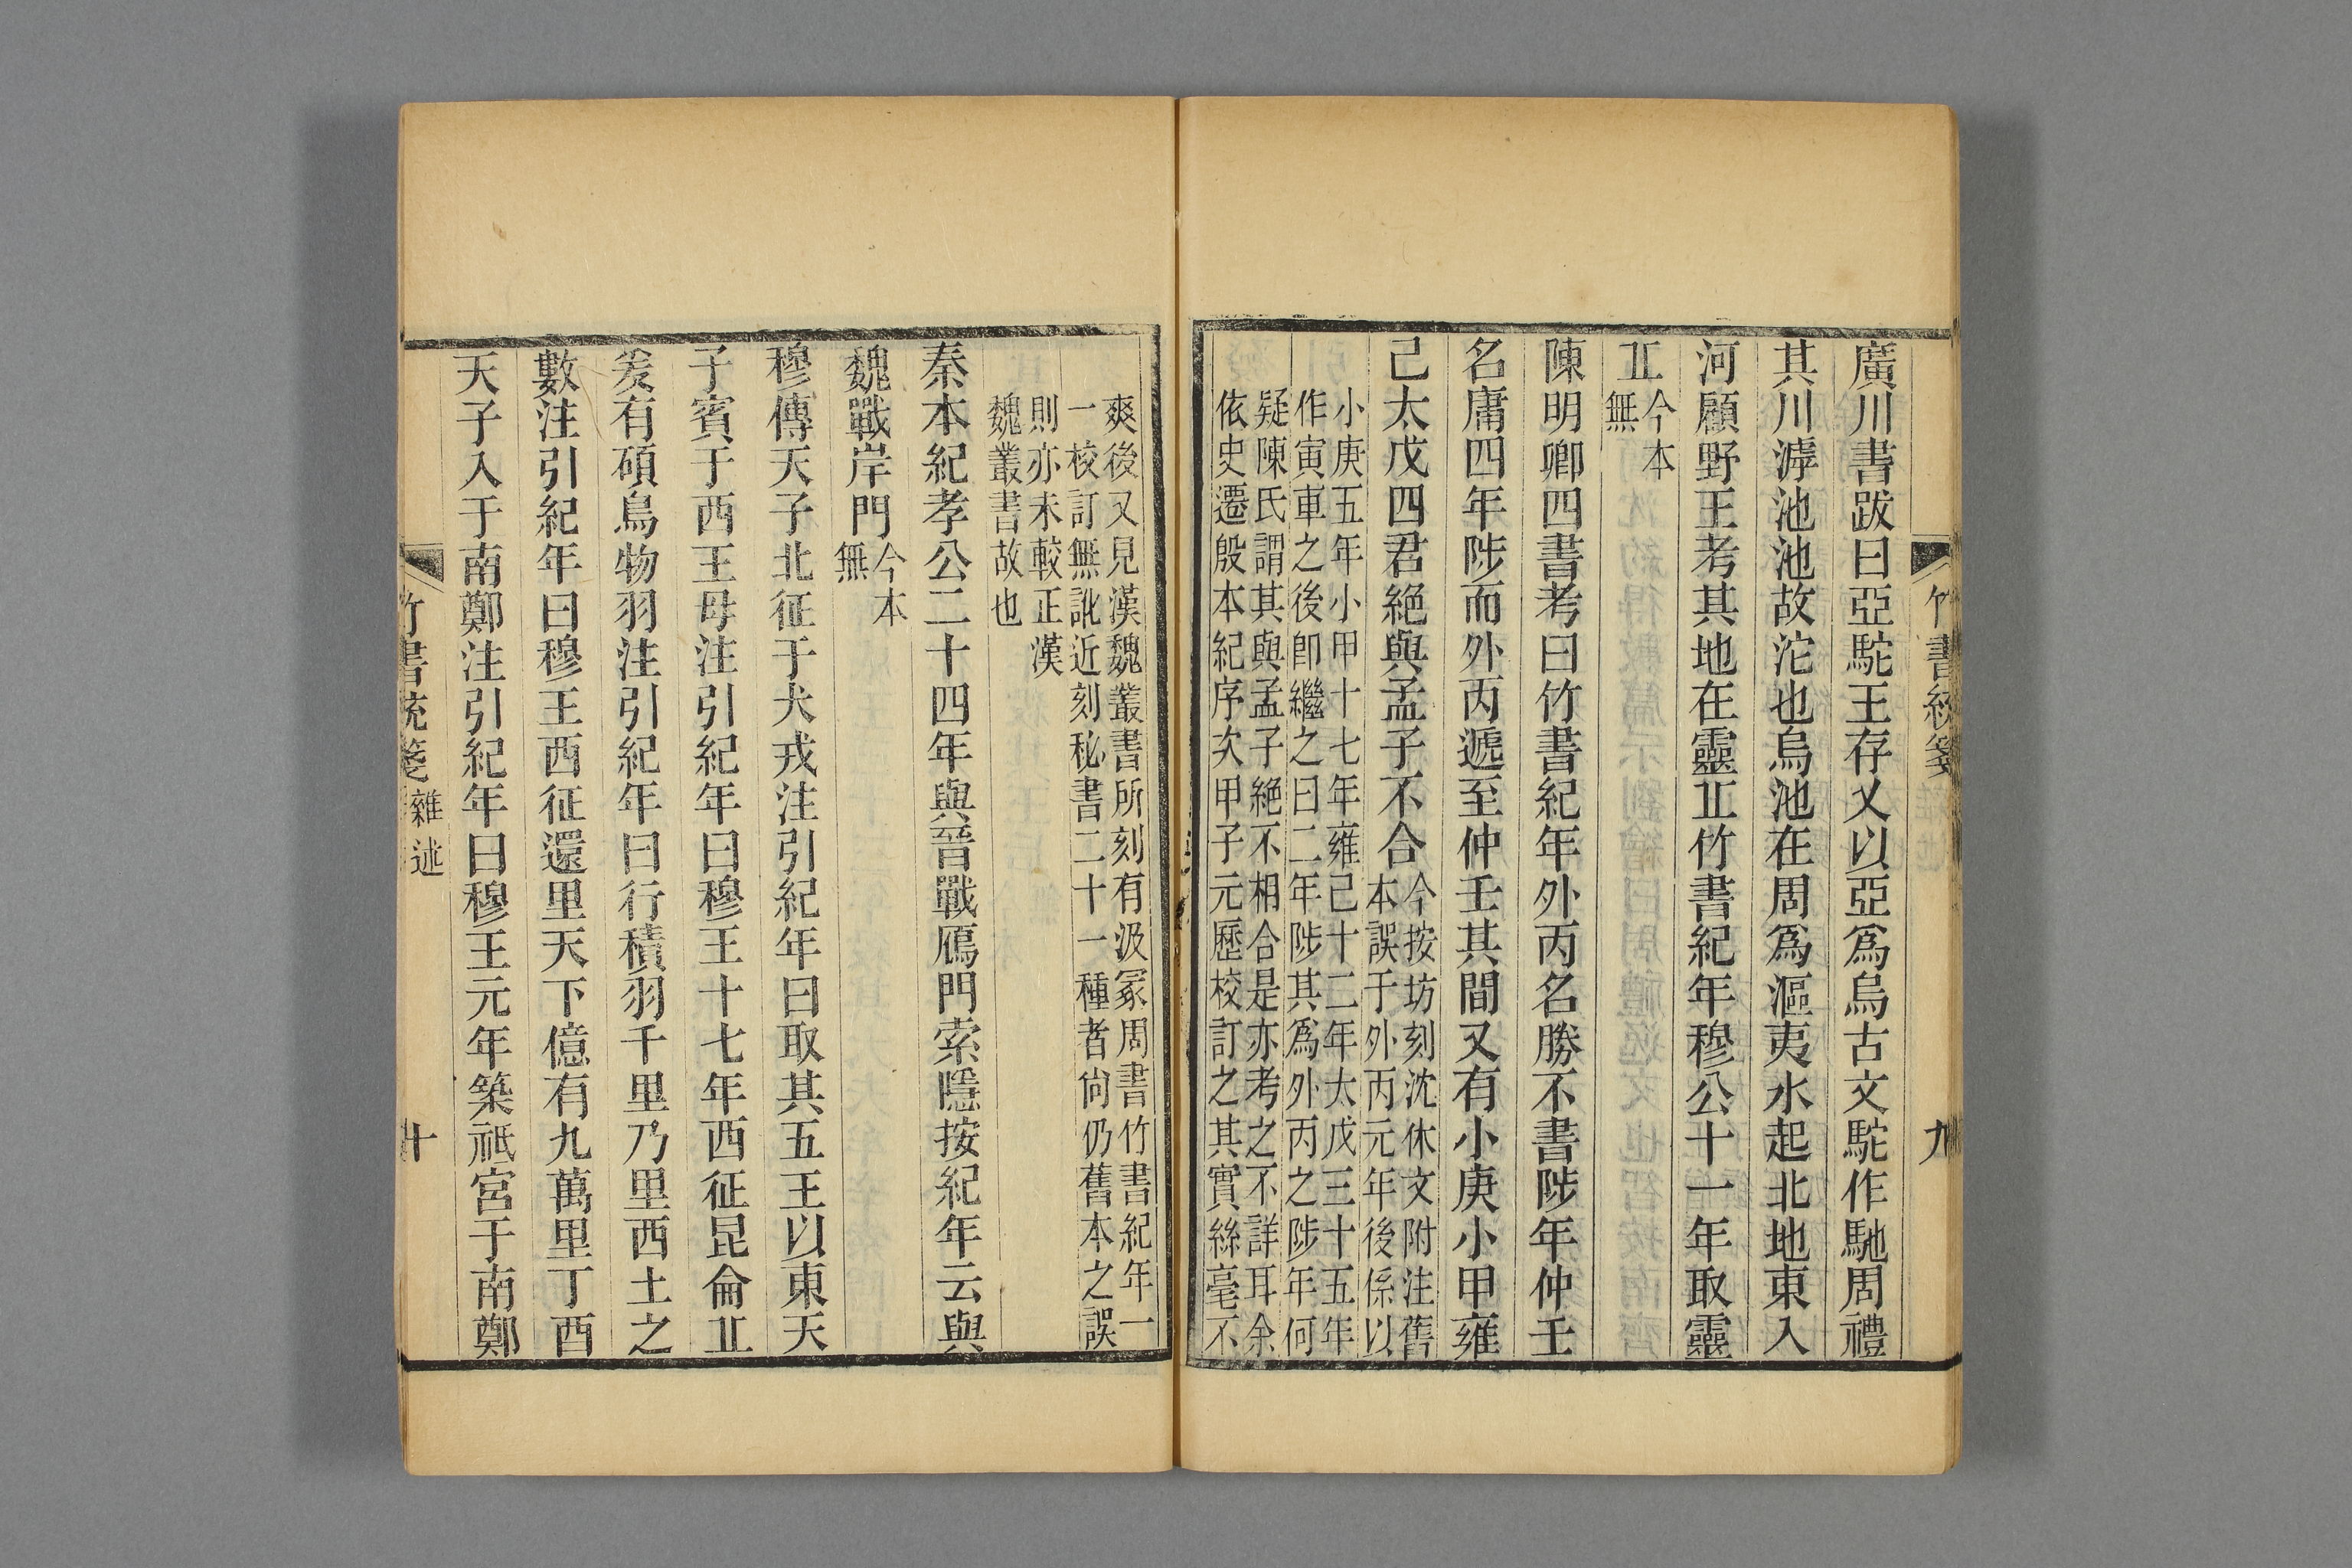 竹書統箋 九
廣川書跋曰亞駝王存乂以亞爲烏古文駝作馳周禮
其川滹池池故沱也烏池在周爲漚夷水起北地東入
河顧野王考其地在靈丠竹書紀年穆公十一年取靈
丠今本
無
陳明卿四書考曰竹書紀年外丙名勝不書陟年仲壬
名庸四年陟而外丙遞至仲壬其間又有小庚小甲雍
己太戊四君絕與孟子不合今按坊刻沈休文附注舊
本誤于外丙元年後係以
小庚五年小甲十七年雍己十二年太戊三十五年
作寅車之後卽繼之曰二年陟其爲外丙之陟年何
疑陳氏謂其與孟子絕不相合是亦考之不詳耳余
依史遷殷本紀序次甲子元歷校訂之其實絲毫不
爽後又見漢魏叢書所刻有汲冢周書竹書紀年一
一校訂無訛近刻秘書二十一種者尙仍舊本之誤
則亦未較正漢
魏叢書故也
秦本紀孝公二十四年與晉戰鴈門索隱按紀年云與
魏戰岸門今本
無
穆傳天子北征于犬戎注引紀年曰取其五王以東天
子賓于西王母注引紀年曰穆王十七年西征昆侖丠
爰有碩鳥物羽注引紀年曰行積羽千里乃里西土之
數注引紀年曰穆王西征還里天下億有九萬里丁酉
天子入于南鄭注引紀年曰穆王元年築祇宮于南鄭
竹書統箋 雜述 十